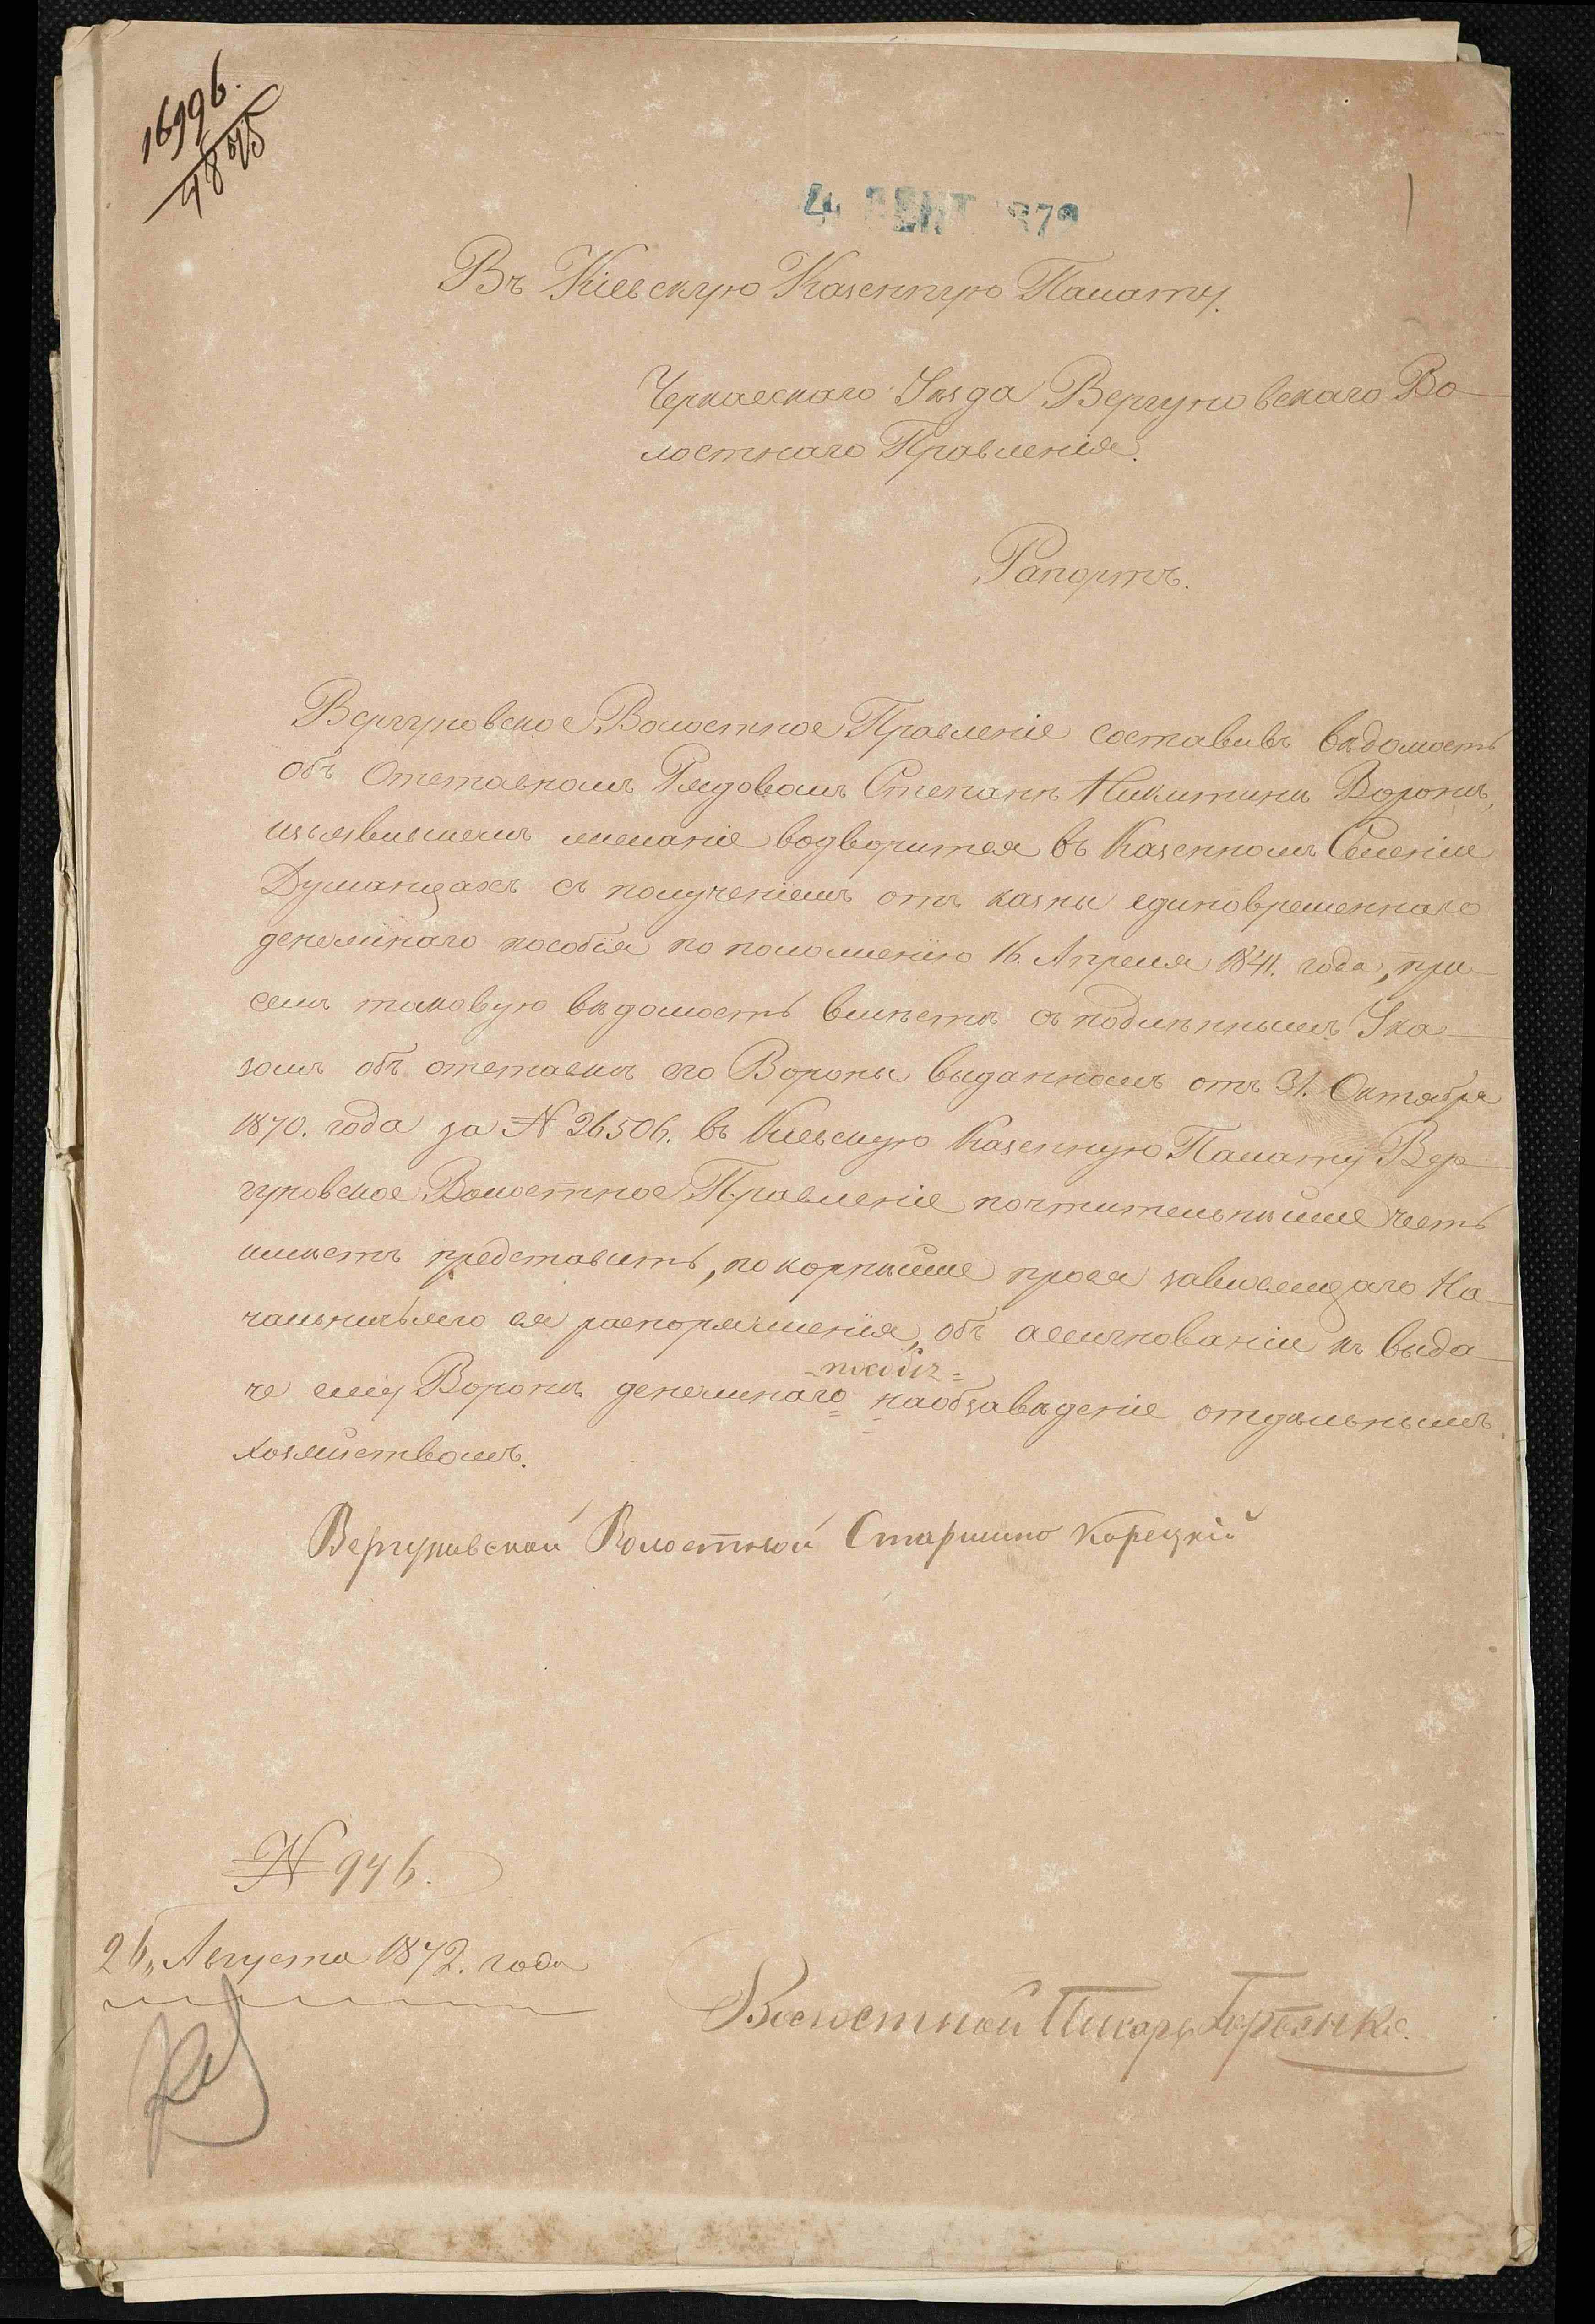 16996.
4 СЕНТ 1872
1
Въ Кіевскую Казенную Палату.
Черкаскаго Уѣзда Вергуновскаго Во-
лостнаго Правленія.
Рапортъ.
Вергуновское Волостное Правленіе составивъ вѣдомость
объ Отставномъ Рядовомъ Степанѣ Никитинѣ Воронѣ,
изъявившемъ желаніе водворится въ Казенномъ Селеніи
Думанцахъ съ полученіемъ отъ казны единовременнаго
денежнаго пособія по положенію 16. Апреля 1841. года, при
семъ таковую вѣдомость вмѣстѣ съ подлиннымъ Ука-
зомъ объ отставкѣ его Вороны выданномъ отъ 31. Октября
1870. года за N 26506. въ Кіевскую Казенную Палату Вер-
гуновское Волостное Правленіе почтительнѣйше честь
имѣетъ представить, покорнѣйше прося зависящаго На-
чальническаго ея распоряженія, объ асигнованіи къ выда-
че ему Воронѣ денежнаго наобзавѣденіе отдѣльнымъ
хозяйствомъ.
Вергуновской Волостной Старшино Корецкій
N 946.
26„ Августа 1872. года
Волостной Писарь